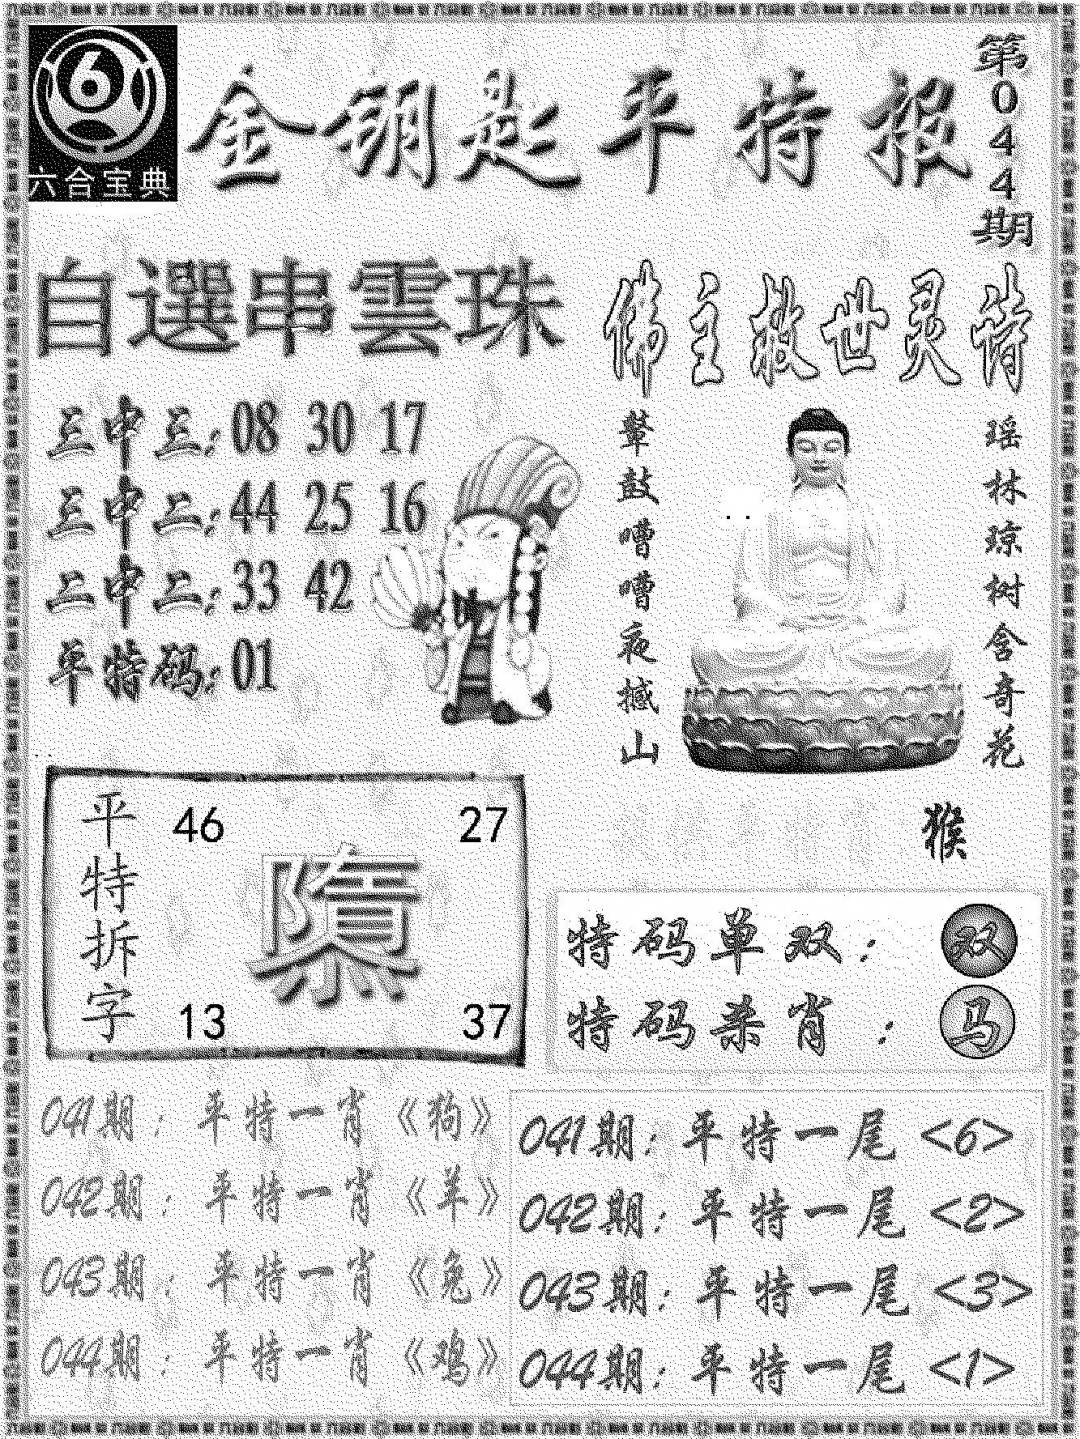 六合宝典
金钥匙平特报
第044期
自選串雲珠
三中三:08 30 17
三中二:44 25 16
二中二:33 42
平特码:01
佛主救世灵诗
瑶林琼树含奇花
鼙鼓嘈嘈夜撼山
猴
平特拆字
46 27
隳
13 37
特码单双:双
特码杀肖:马
041期:平特一肖《狗》
042期:平特一肖《羊》
043期:平特一肖《兔》
044期:平特一肖《鸡》
041期:平特一尾<6>
042期:平特一尾<2>
043期:平特一尾<3>
044期:平特一尾<1>